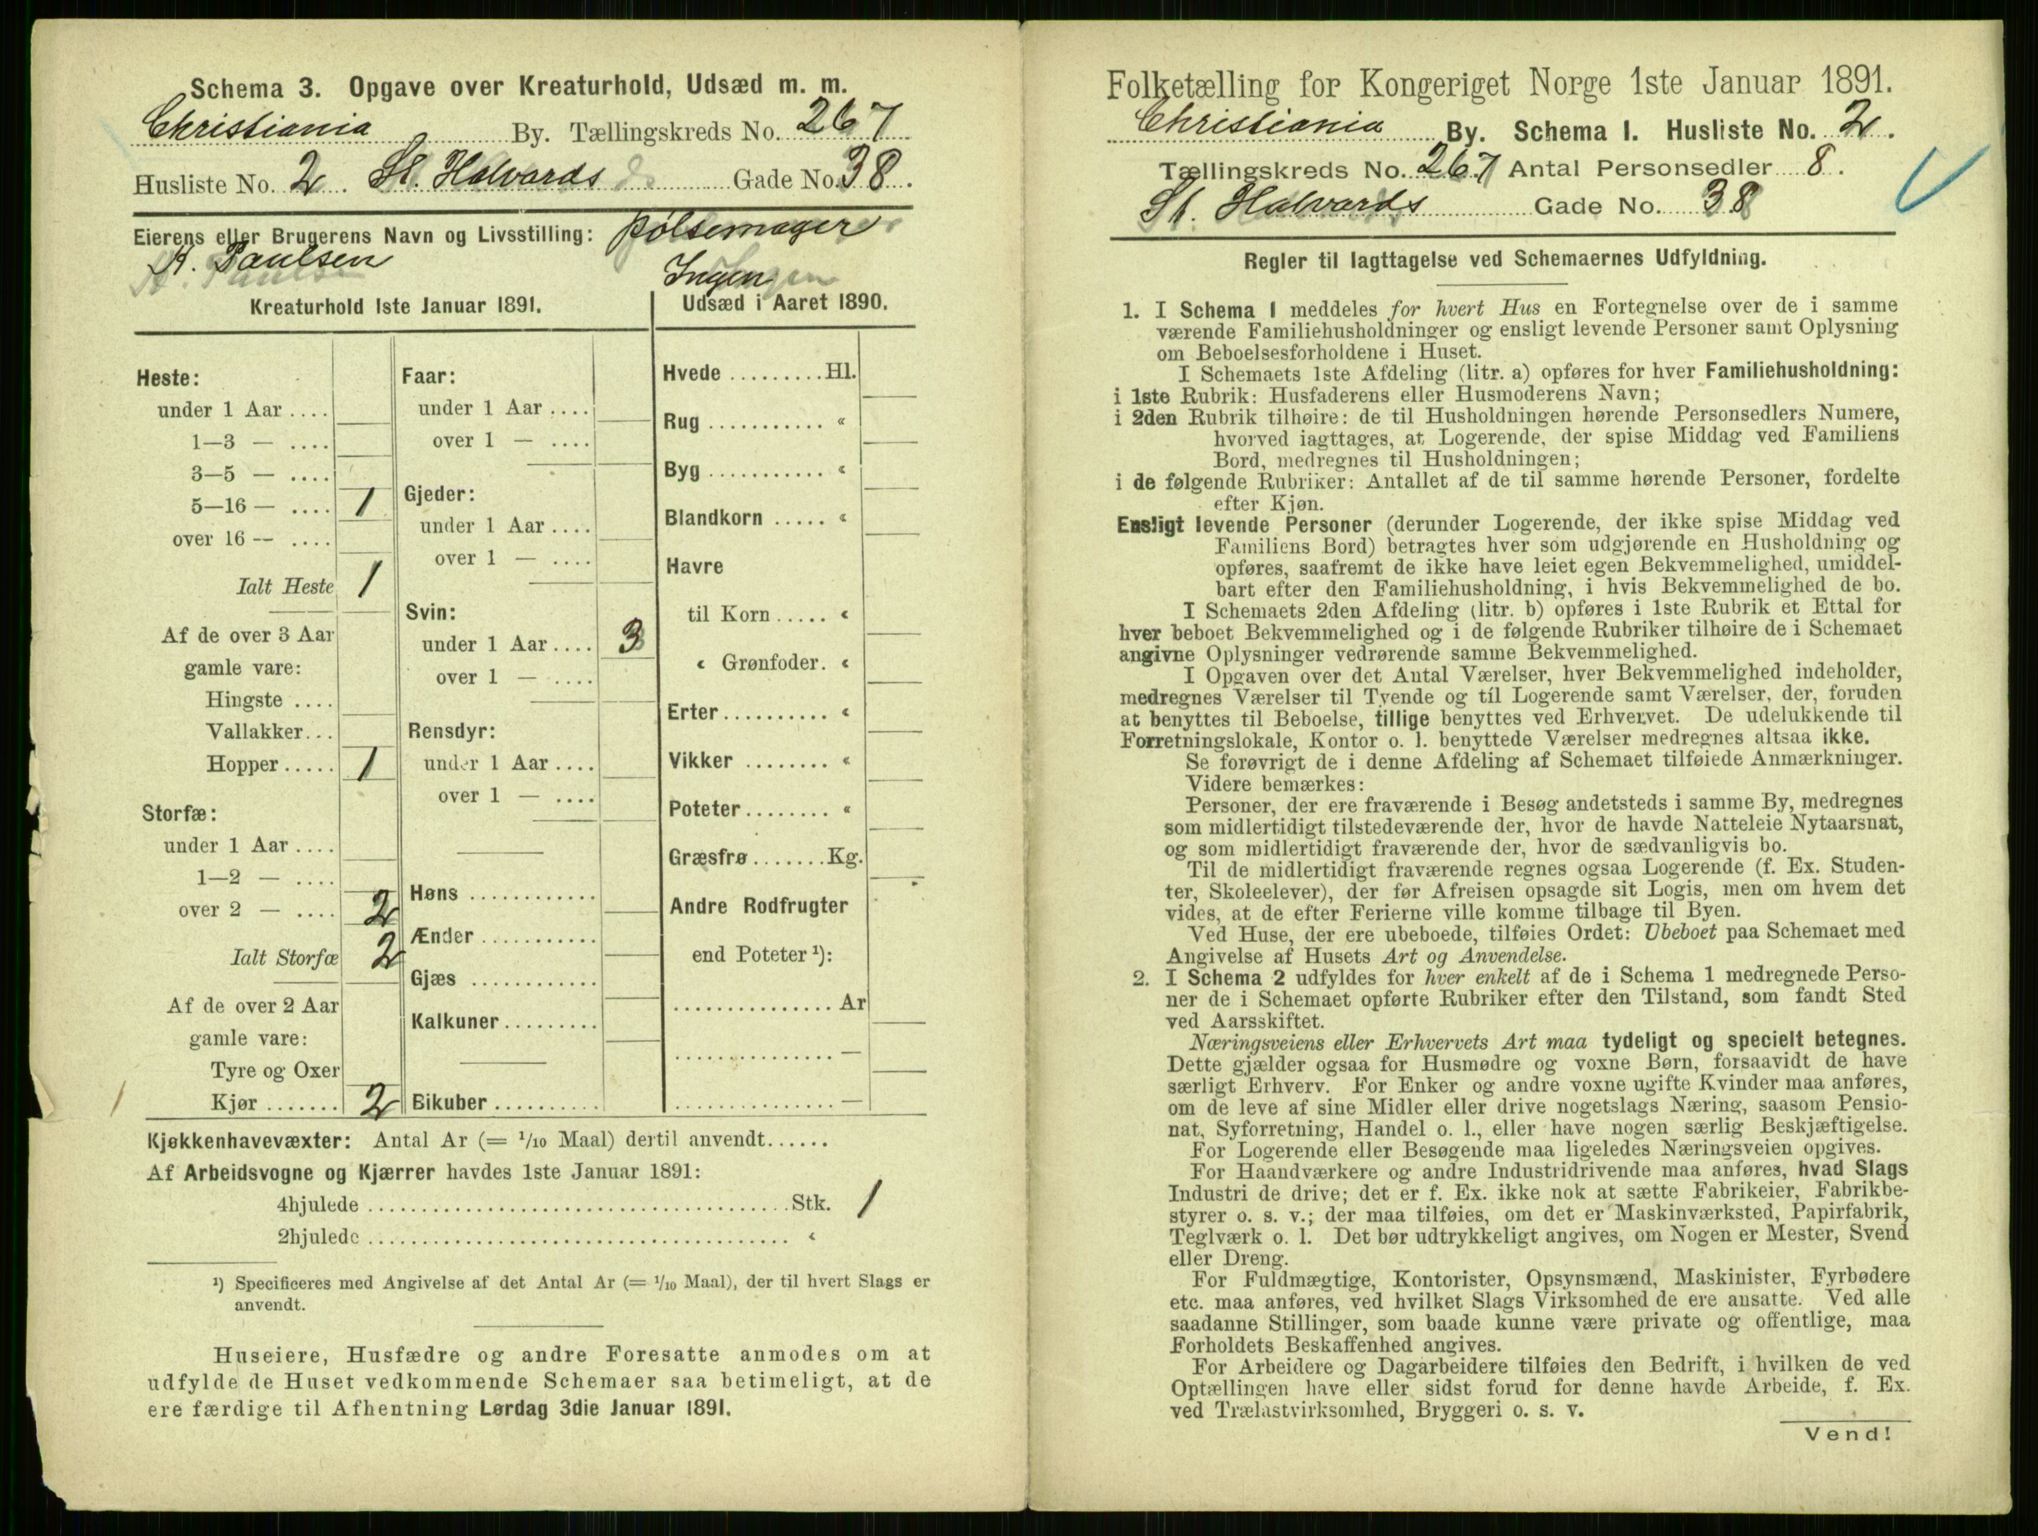 Schema 3. Opgave over Kreaturhold, Udsæd m. m.
Christiania By. Tællingskreds No. 267
Husliste No. 2. St. Halvards Gade No. 38.
Eierens eller Brugerens Navn og Livsstilling: Pølsemager
K. Paulsen
Ingen
Kreaturhold 1ste Januar 1891.
Udsæd i Aaret 1890.
Heste:
under 1 Aar ....
1—3 — ....
3—5 — ....
5—16 — .... 1
over 16 — ....
Ialt Heste 1
Af de over 3 Aar
gamle vare:
Hingste ....
Vallakker...
Hopper..... 1
Storfæ:
under 1 Aar ....
1—2 — ....
over 2 — .... 2
Ialt Storfæ 2
Af de over 2 Aar
gamle vare:
Tyre og Oxer
Kjør ....... 2
Faar:
under 1 Aar ....
over 1 — ....
Gjeder:
under 1 Aar ....
over 1 — ....
Svin:
under 1 Aar .... 3
over 1 — ....
Rensdyr:
under 1 Aar ....
over 1 — ....
Høns ............
Ænder...........
Gjæs ............
Kalkuner.........
Bikuber ..........
Hvede .........Hl.
Rug ........... «
Byg ........... «
Blandkorn ..... «
Havre
til Korn ..... «
« Grønfoder. «
Erter.......... «
Vikker ........ «
Poteter........ «
Græsfrø .......Kg.
Andre Rodfrugter
end Poteter ¹):
............... Ar
............... —
............... —
Kjøkkenhavevæxter: Antal Ar (= 1/10 Maal) dertil anvendt......
Af Arbeidsvogne og Kjærrer havdes 1ste Januar 1891:
4hjulede ........................................Stk. 1
2hjulede ........................................ «
¹) Specificeres med Angivelse af det Antal Ar (= 1/10 Maal), der til hvert Slags er
anvendt.
Huseiere, Husfædre og andre Foresatte anmodes om at
udfylde de Huset vedkommende Schemaer saa betimeligt, at de
ere færdige til Afhentning Lørdag 3die Januar 1891.
Folketælling for Kongeriget Norge 1ste Januar 1891.
Christiania By. Schema I. Husliste No. 2.
Tællingskreds No. 267 Antal Personsedler 8.
St. Halvards Gade No. 38
Regler til Iagttagelse ved Schemaernes Udfyldning.
1. I Schema 1 meddeles for hvert Hus en Fortegnelse over de i samme
værende Familiehusholdninger og ensligt levende Personer samt Oplysning
om Beboelsesforholdene i Huset.
I Schemaets 1ste Afdeling (litr. a) opføres for hver Familiehusholdning:
i 1ste Rubrik: Husfaderens eller Husmoderens Navn;
i 2den Rubrik tilhøire: de til Husholdningen hørende Personsedlers Numere,
hvorved iagttages, at Logerende, der spise Middag ved Familiens
Bord, medregnes til Husholdningen;
i de følgende Rubriker: Antallet af de til samme hørende Personer, fordelte
efter Kjøn.
Ensligt levende Personer (derunder Logerende, der ikke spise Middag ved
Familiens Bord) betragtes hver som udgjørende en Husholdning og
opføres, saafremt de ikke have leiet egen Bekvemmelighed, umiddel-
bart efter den Familiehusholdning, i hvis Bekvemmelighed de bo.
I Schemaets 2den Afdeling (litr. b) opføres i 1ste Rubrik et Ettal for
hver beboet Bekvemmelighed og i de følgende Rubriker tilhøire de i Schemaet
angivne Oplysninger vedrørende samme Bekvemmelighed.
I Opgaven over det Antal Værelser, hver Bekvemmelighed indeholder,
medregnes Værelser til Tyende og til Logerende samt Værelser, der, foruden
at benyttes til Beboelse, tillige benyttes ved Erhvervet. De udelukkende til
Forretningslokale, Kontor o. l. benyttede Værelser medregnes altsaa ikke.
Se forøvrigt de i denne Afdeling af Schemaet tilføiede Anmærkninger.
Videre bemærkes:
Personer, der ere fraværende i Besøg andetsteds i samme By, medregnes
som midlertidigt tilstedeværende der, hvor de havde Natteleie Nytaarsnat,
og som midlertidigt fraværende der, hvor de sædvanligvis bo.
Til de midlertidigt fraværende regnes ogsaa Logerende (f. Ex. Studen-
ter, Skoleelever), der før Afreisen opsagde sit Logis, men om hvem det
vides, at de efter Ferierne ville komme tilbage til Byen.
Ved Huse, der ere ubeboede, tilføies Ordet: Ubeboet paa Schemaet med
Angivelse af Husets Art og Anvendelse.
2. I Schema 2 udfyldes for hver enkelt af de i Schema 1 medregnede Perso-
ner de i Schemaet opførte Rubriker efter den Tilstand, som fandt Sted
ved Aarsskiftet.
Næringsveiens eller Erhvervets Art maa tydeligt og specielt betegnes.
Dette gjælder ogsaa for Husmødre og voxne Børn, forsaavidt de have
særligt Erhverv. For Enker og andre voxne ugifte Kvinder maa anføres,
om de leve af sine Midler eller drive nogetslags Næring, saasom Pensio-
nat, Syforretning, Handel o. l., eller have nogen særlig Beskjæftigelse.
For Logerende eller Besøgende maa ligeledes Næringsveien opgives.
For Haandværkere og andre Industridrivende maa anføres, hvad Slags
Industri de drive; det er f. Ex. ikke nok at sætte Fabrikeier, Fabrikbe-
styrer o. s. v.; der maa tilføies, om det er Maskinværksted, Papirfabrik,
Teglværk o. l. Det bør udtrykkeligt angives, om Nogen er Mester, Svend
eller Dreng.
For Fuldmægtige, Kontorister, Opsynsmænd, Maskinister, Fyrbødere
etc. maa anføres, ved hvilket Slags Virksomhed de ere ansatte. Ved alle
saadanne Stillinger, som baade kunne være private og offentlige, maa
Forholdets Beskaffenhed angives.
For Arbeidere og Dagarbeidere tilføies den Bedrift, i hvilken de ved
Optællingen have eller sidst forud for denne havde Arbeide, f. Ex.
ved Trælastvirksomhed, Bryggeri o. s. v.
Vend!